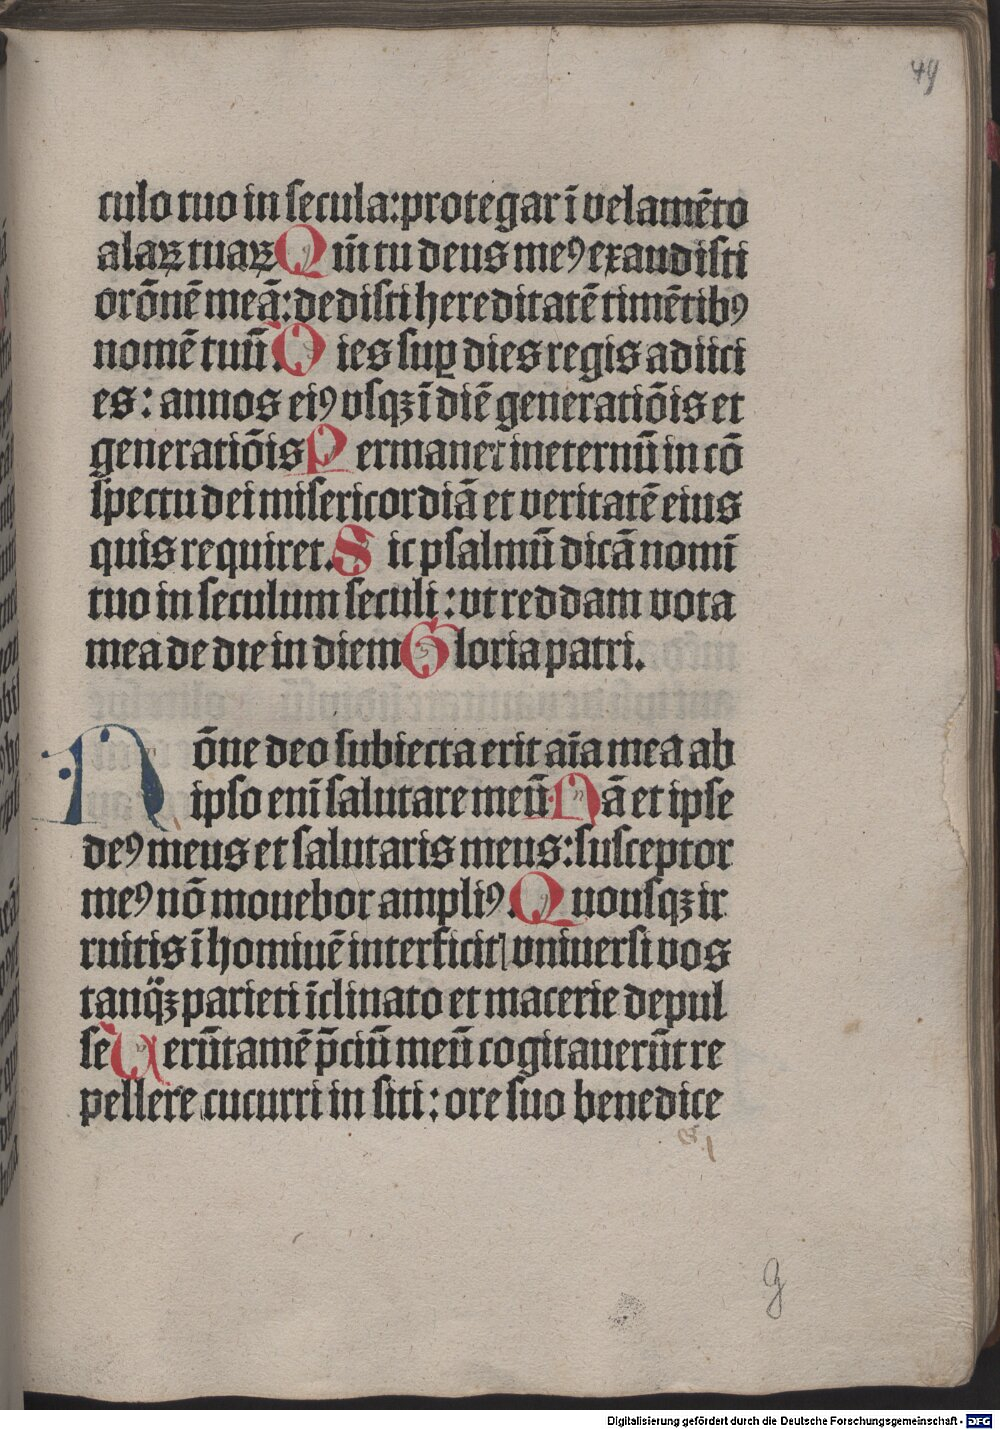 49
culo tuo in secula: protegar ī velamēto
alaꝝ tuaꝝ Qm̄ tu deus meꝰ exaudisti
orōnē meā: dedisti hereditatē timētibꝰ
nomē tuū. Dies suꝑ dies regis adiici
es: annos eiꝰ vsqꝫ ī diē generatiōis et
generatiōis Permanet in eternū in cō
spectu dei misericordiā et veritatē eius
quis requiret. Sic psalmū dicā nomī
tuo in seculum seculi: vt reddam vota
mea de die in diem Gloria patri.
Nōne deo subiecta erit aīa mea ab
ipso enī salutare meū. Nā et ipse
deꝰ meus et salutaris meus: susceptor
meꝰ nō mouebor ampliꝰ. Quousqꝫ ir
ruitis ī hominē interficit vniuersi vos
tanq̄ꝫ parieti īclinato et macerie depul
se Uerūtamē p̄ciū meū cogitauerūt re
pellere cucurri in siti: ore suo benedice
g
Digitalisierung gefördert durch die Deutsche Forschungsgemeinschaft - DFG